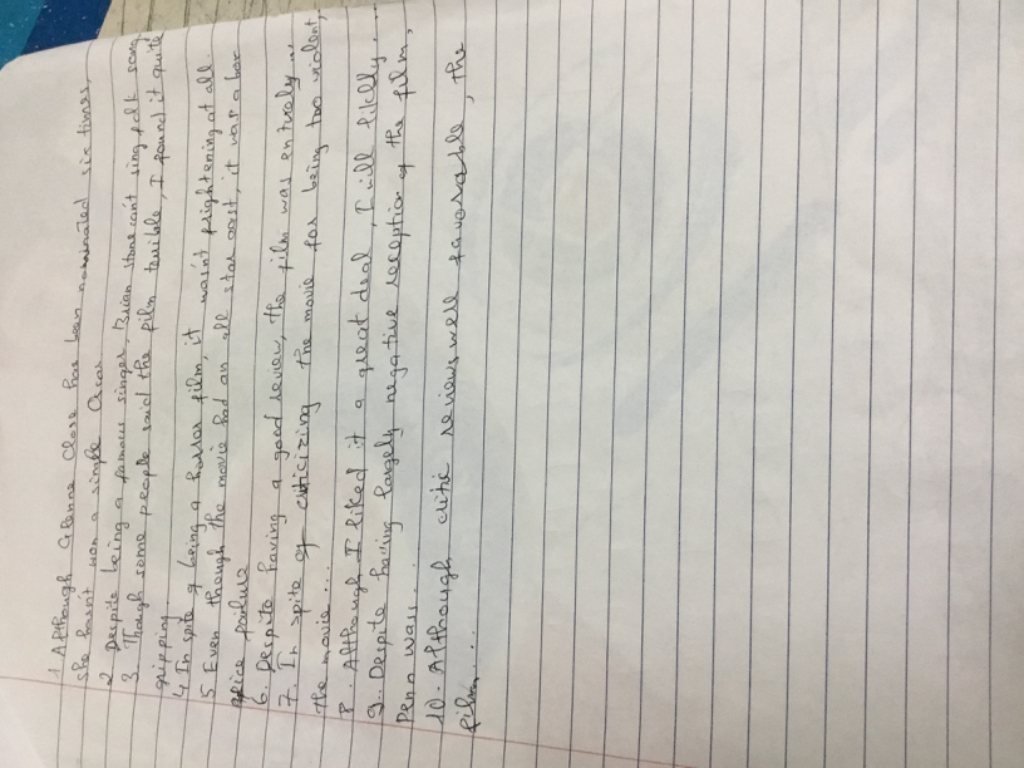 1 Although Glenne Close has been nominated six times,
she hasn't won a single Oscar
2 Despite being a famous singer, stone can't sing folk song
3. Though some people said the film terrible, I found it quite
gripping
4 In spite of being a horror film, it wasn't frightening at all
5 Even though the movie had an all star cast, it was a box
6. Despite having a good review, the film was entirely ...
7. In spite of criticizing the movie for being too violent,
the movie....
8. Although I liked it a great deal, I will
9. Despite having largely negative reception of the film,
Penn was....
10- Although critic reviews well favorable, the
film....